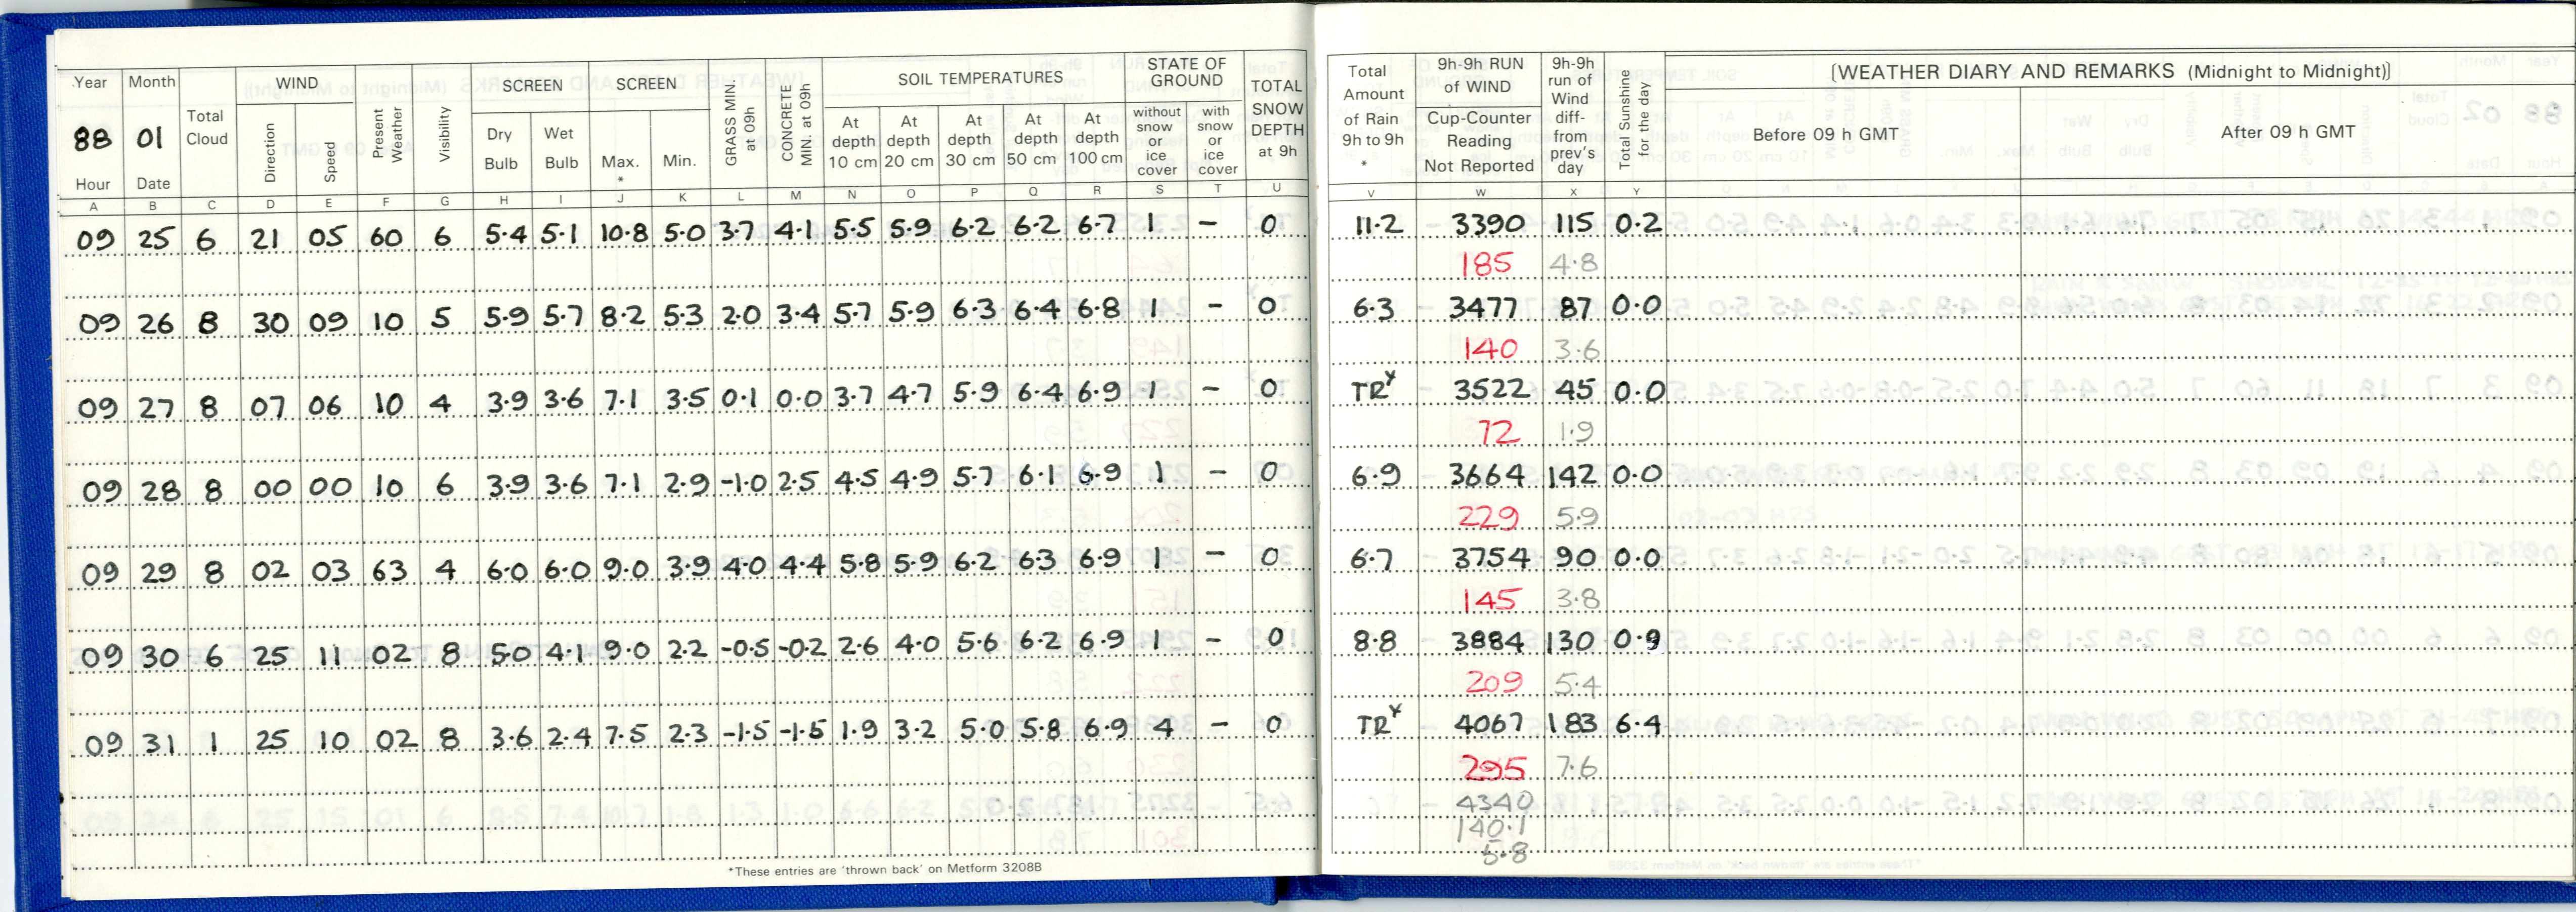 Year Month WIND SCREEN SCREEN SOIL TEMPERATURES STATE OF GROUND TOTAL SNOW DEPTH at 9h
88 01 Total Cloud Direction Speed Present Weather Visibility Dry Bulb Wet Bulb Max. * Min. GRASS MIN. at 09h CONCRETE MIN. at 09h At depth 10 cm At depth 20 cm At depth 30 cm At depth 50 cm At depth 100 cm without snow or ice cover with snow or ice cover
Hour Date
A B C D E F G H I J K L M N O P Q R S T U
09 25 6 21 05 60 6 5.4 5.1 10.8 5.0 3.7 4.1 5.5 5.9 6.2 6.2 6.7 1 – 0
09 26 8 30 09 10 5 5.9 5.7 8.2 5.3 2.0 3.4 5.7 5.9 6.3 6.4 6.8 1 – 0
09 27 8 07 06 10 4 3.9 3.6 7.1 3.5 0.1 0.0 3.7 4.7 5.9 6.4 6.9 1 – 0
09 28 8 00 00 10 6 3.9 3.6 7.1 2.9 -1.0 2.5 4.5 4.9 5.7 6.1 6.9 1 – 0
09 29 8 02 03 63 4 6.0 6.0 9.0 3.9 4.0 4.4 5.8 5.9 6.2 6.3 6.9 1 – 0
09 30 6 25 11 02 8 5.0 4.1 9.0 2.2 -0.5 -0.2 2.6 4.0 5.6 6.2 6.9 1 – 0
09 31 1 25 10 02 8 3.6 2.4 7.5 2.3 -1.5 -1.5 1.9 3.2 5.0 5.8 6.9 4 – 0
*These entries are 'thrown back' on Metform 3208B
Total Amount of Rain 9h to 9h * 9h-9h RUN of WIND Cup-Counter Reading Not Reported 9h-9h run of Wind diff- from prev's day Total Sunshine for the day [WEATHER DIARY AND REMARKS (Midnight to Midnight)]
Before 09 h GMT After 09 h GMT
V W X Y
11.2 3390 115 0.2
185 4.8
6.3 3477 87 0.0
140 3.6
TR 3522 45 0.0
72 1.9
6.9 3664 142 0.0
229 5.9
6.7 3754 90 0.0
145 3.8
8.8 3884 130 0.9
209 5.4
TR 4067 183 6.4
295 7.6
4340
140.1
5.8